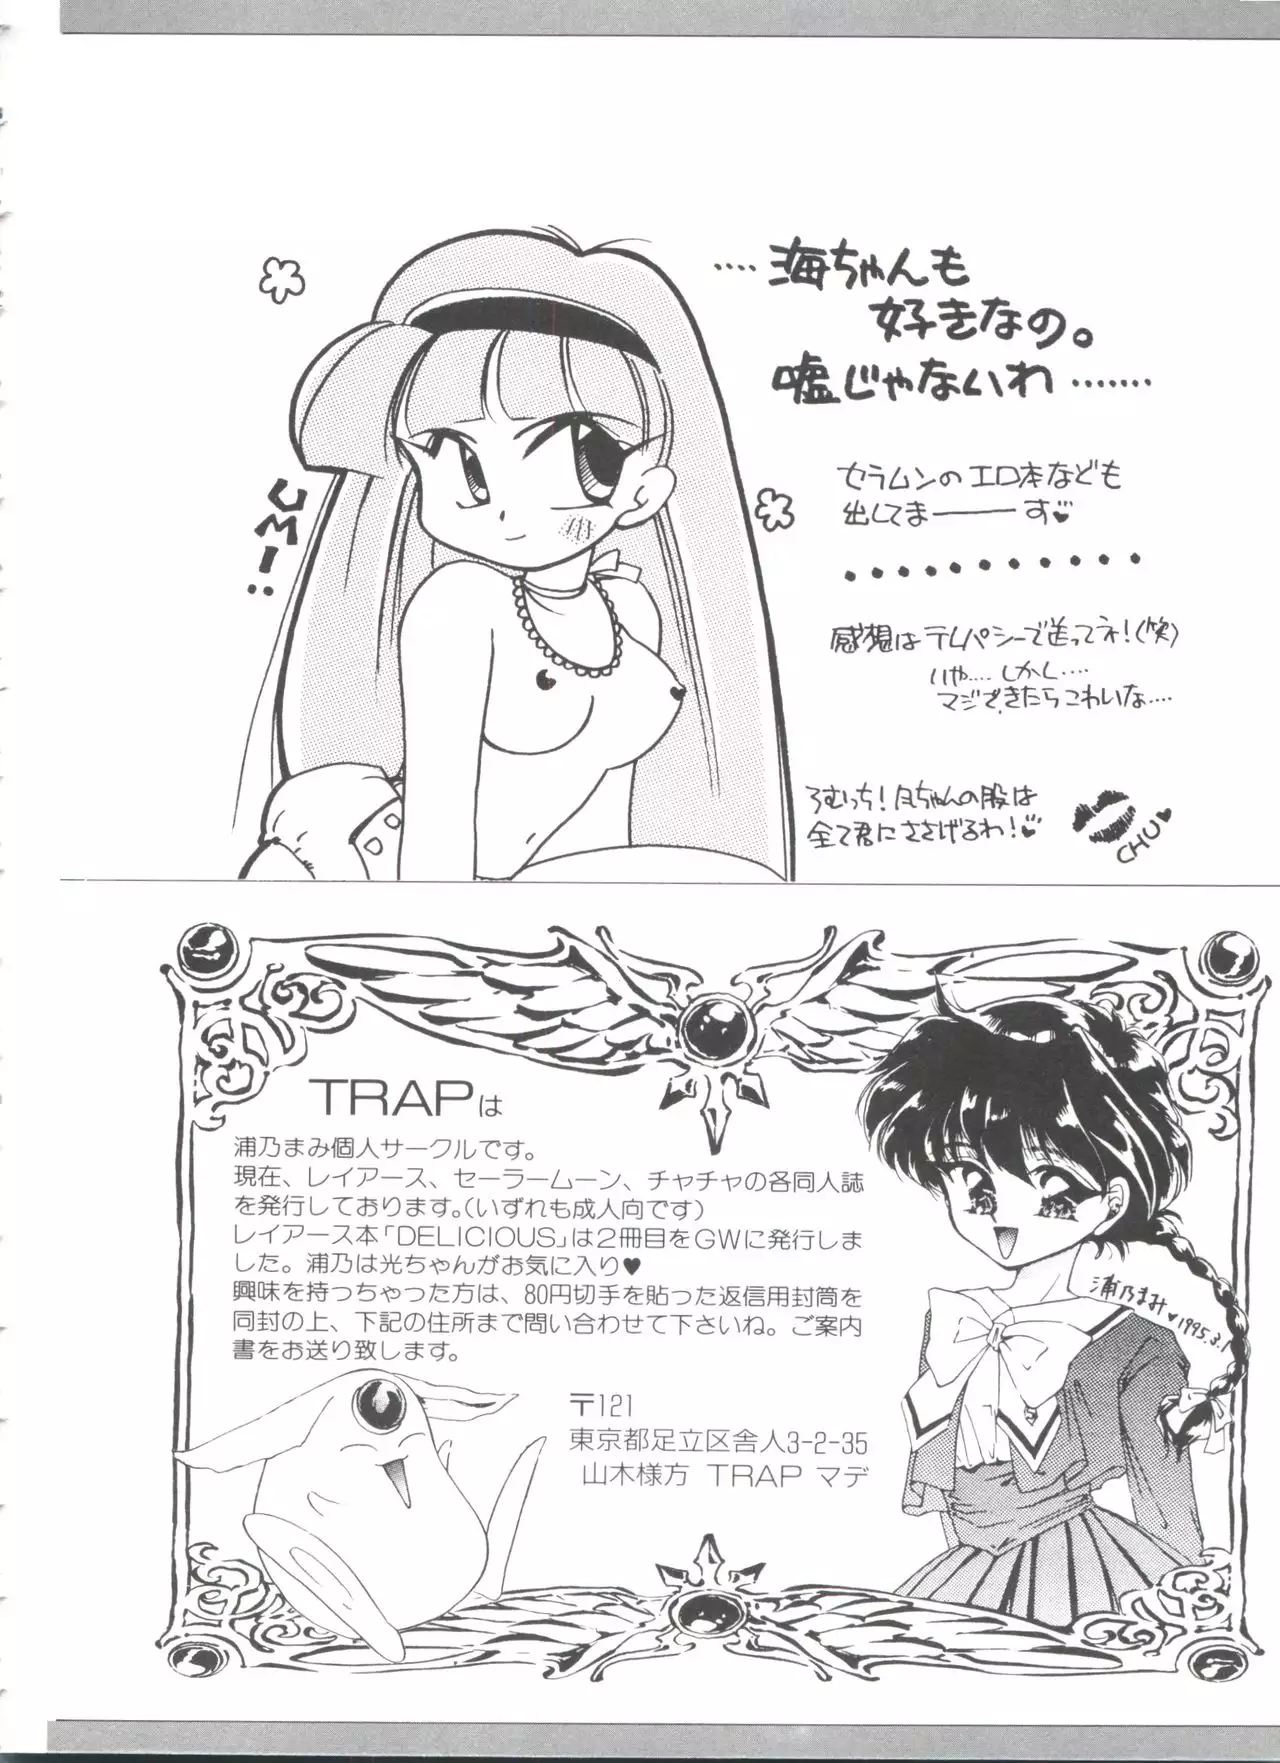 ‥‥海ちゃんも
好きなの。
嘘じゃないわ‥‥‥
UMI‥
セラムンのエロ本なども
出してまーーーす♥
感想はテレパシーで送ってネ!(笑)
いや‥‥しかし‥‥
マジできたらこわいな‥‥
ろむっち!月ちゃんの股は
全て君にささげるわ!♥
CHU♥
TRAPは
浦乃まみ個人サークルです。
現在、レイアース、セーラームーン、チャチャの各同人誌
を発行しております。(いずれも成人向です)
レイアース本「DELICIOUS」は2冊目をGWに発行しま
した。浦乃は光ちゃんがお気に入り♥
興味を持っちゃった方は、80円切手を貼った返信用封筒を
同封の上、下記の住所まで問い合わせて下さいね。ご案内
書をお送り致します。
浦乃まみ♥1995.3.1
〒121
東京都足立区舎人3-2-35
山木様方 TRAP マデ